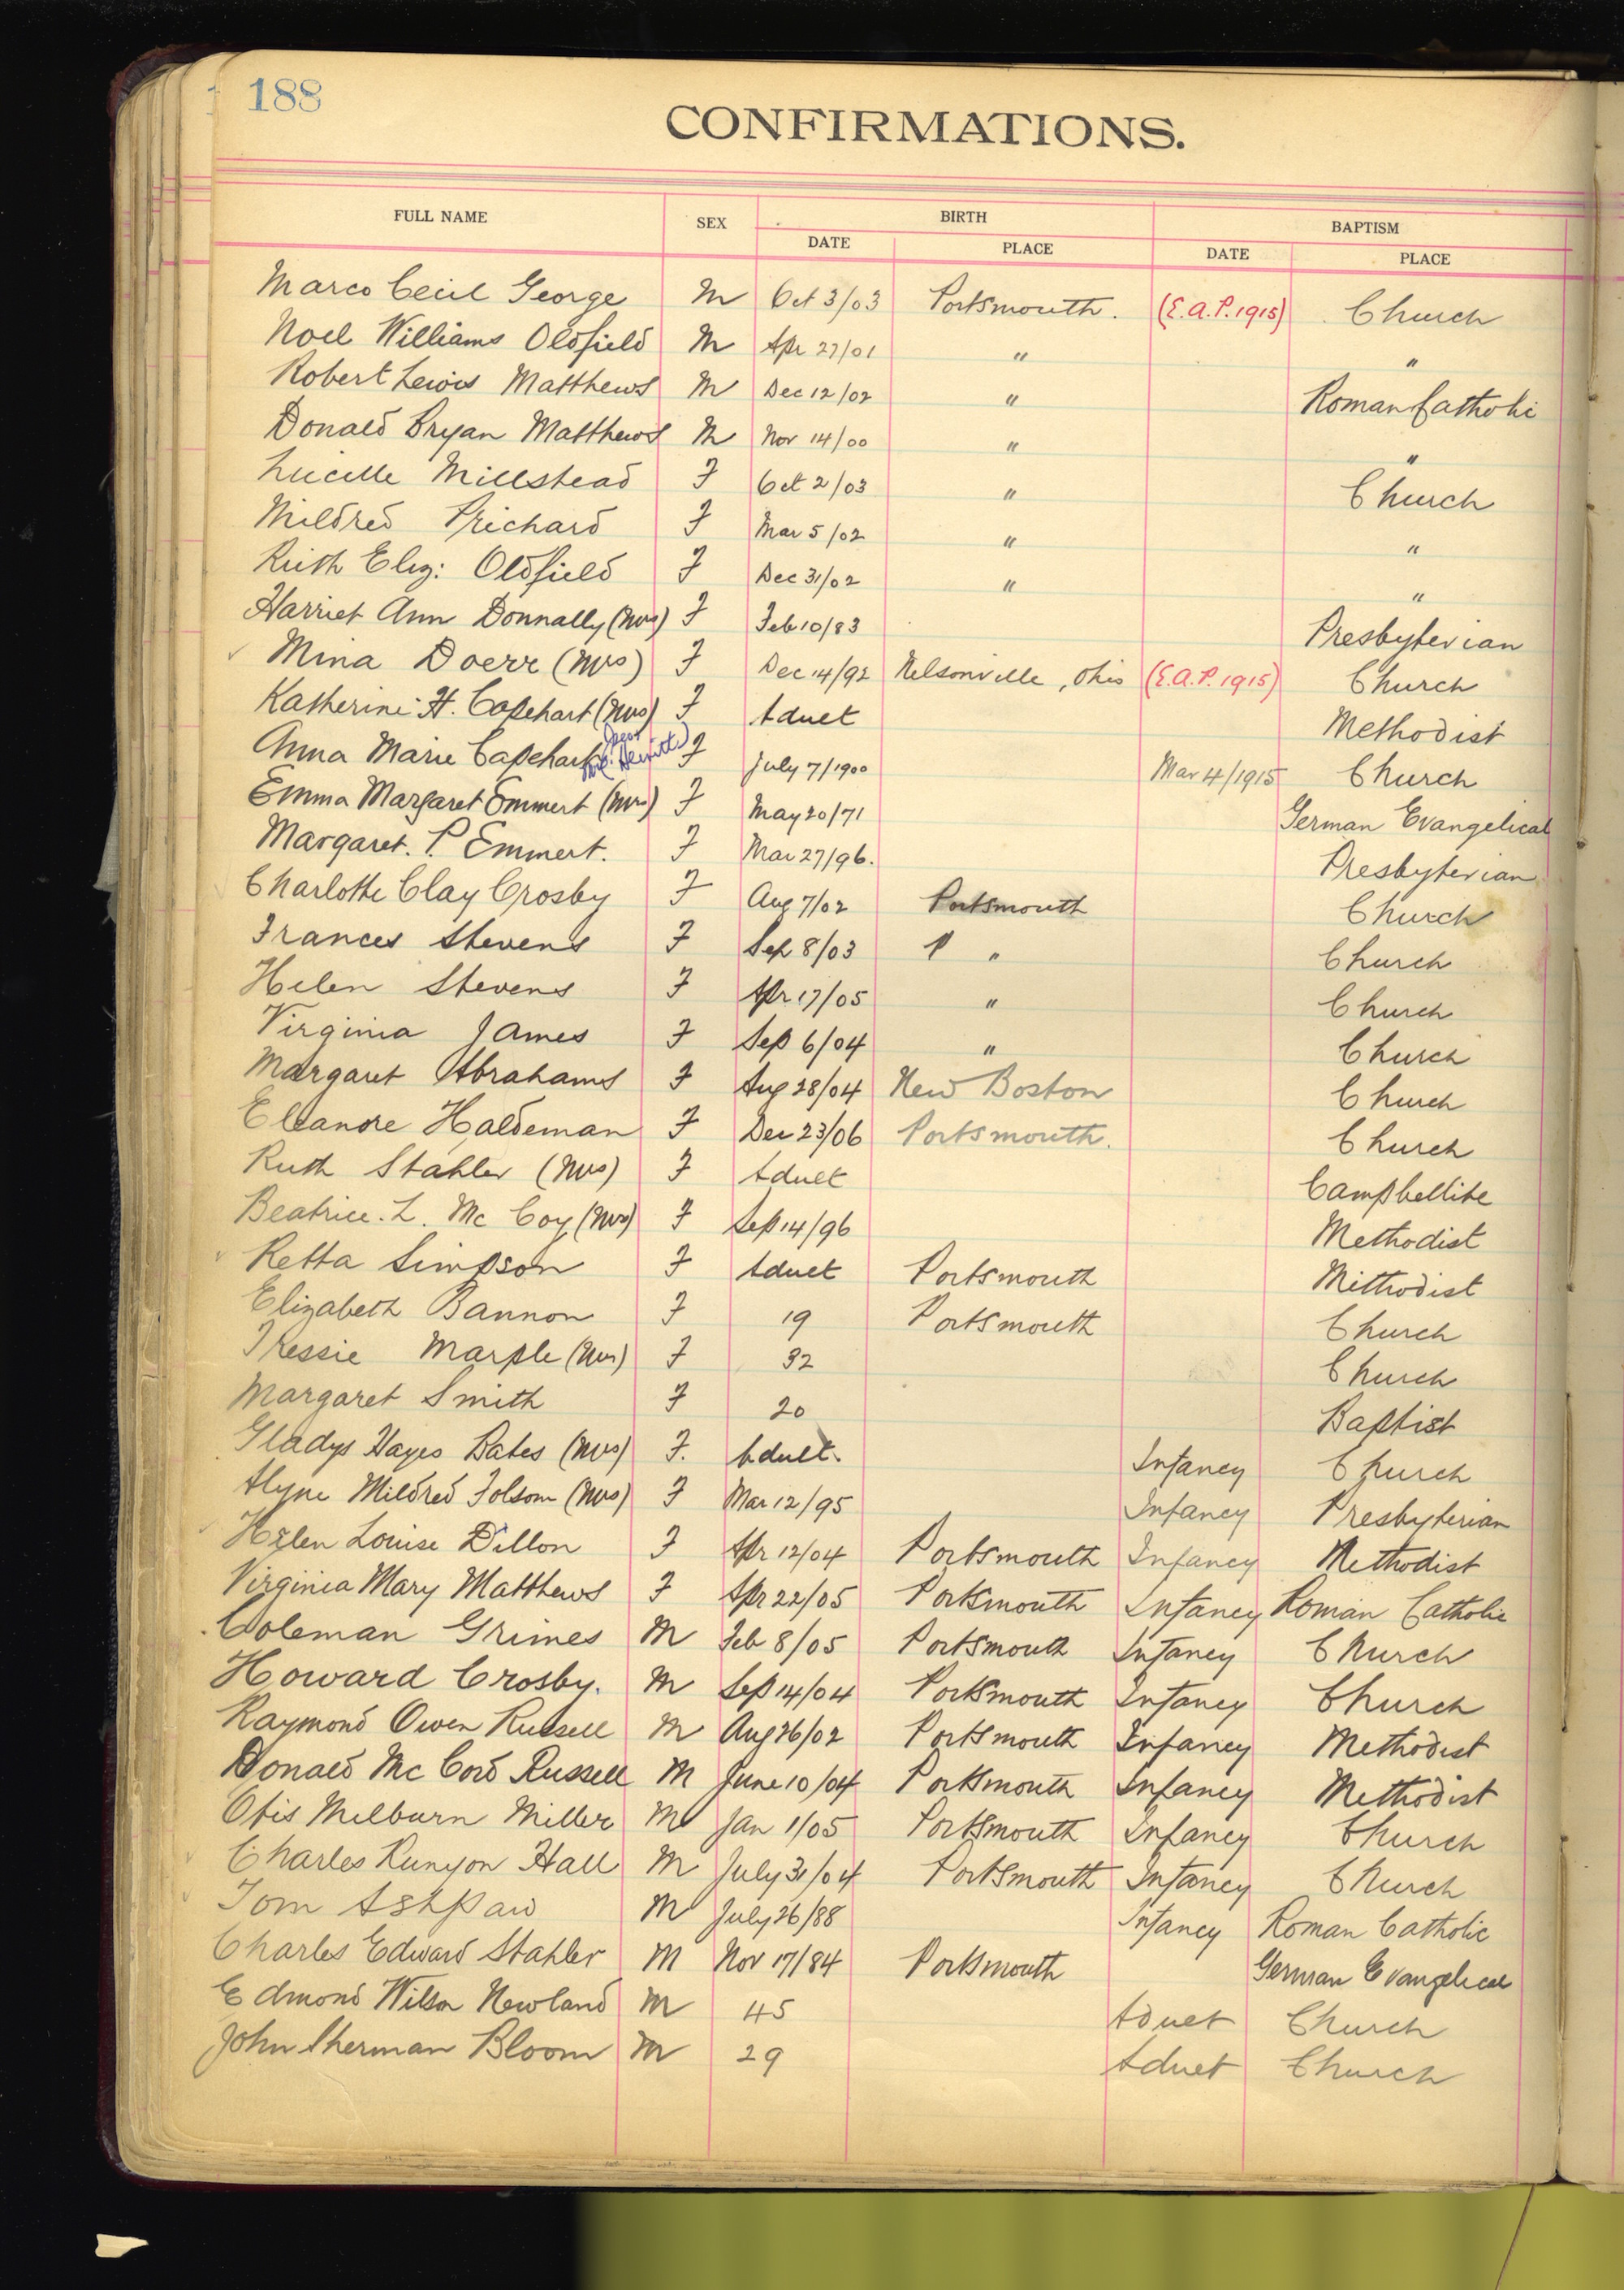 188
CONFIRMATIONS.
FULL NAME SEX BIRTH BAPTISM
DATE PLACE DATE PLACE
Marco Cecil George M Oct 3/03 Portsmouth. (E.A.P. 1915) Church
Noel Williams Oldfield M Apr 27/01 " "
Robert Lewis Matthews M Dec 12/02 " Roman Catholi
Donald Bryan Matthews M Nov 14/00 " "
Lucille Millstead F Oct 2/03 " Church
Mildred Prichard F Mar 5/02 " "
Ruth Eliz: Oldfield F Dec 31/02 " "
Harriet Ann Donnally (Mrs) F Feb 10/83 Presbyterian
Mina Doerr (Mrs) F Dec 14/92 Nelsonville, Ohio (E.A.P. 1915) Church
Katherine H. Capehart (Mrs) F Adult Methodist
Anna Marie Capehart F July 7/1900 Mar 4/1915 Church
Emma Margaret Emmert (Mrs) F May 20/71 German Evangelical
Margaret. P. Emmert. F Mar 27/96. Presbyterian
Charlotte Clay Crosby F Aug 7/02 Portsmouth Church
Frances Stevens F Sep 8/03 P " Church
Helen Stevens F Apr 17/05 " Church
Virginia James F Sep 6/04 " Church
Margaret Abrahams F Aug 28/04 New Boston Church
Eleanore Haldeman F Dec 23/06 Portsmouth. Church
Ruth Stahler (Mrs) F Adult Campbellite
Beatrice. L. Mc Coy (Mrs) F Sep 14/96 Methodist
Retta Simpson F Adult Portsmouth Methodist
Elizabeth Bannon F 19 Portsmouth Church
Tressie Marple (Mrs) F 32 Church
Margaret Smith F 20 Baptist
Gladys Hayes Bates (Mrs) F. Adult. Infancy Church
Alyne Mildred Folsom (Mrs) F Mar 12/95 Infancy Presbyterian
Helen Louise Dillon F Apr 12/04 Portsmouth Infancy Methodist
Virginia Mary Matthews F Apr 22/05 Portsmouth Infancy Roman Catholic
Coleman Grimes M Feb 8/05 Portsmouth Infancy Church
Howard Crosby. M Sep 14/04 Portsmouth Infancy Church
Raymond Owen Russell M Aug 26/02 Portsmouth Infancy Methodist
Donald Mc Cord Russell M June 10/04 Portsmouth Infancy Methodist
Otis Milburn Miller M Jan 1/05 Portsmouth Infancy Church
Charles Runyon Hall M July 31/04 Portsmouth Infancy Church
Tom Ashpaw M July 26/88 Infancy Roman Catholic
Charles Edward Stahler M Nov 17/84 Portsmouth German Evangelical
Edmond Wilson Newland M 45 Adult Church
John Sherman Bloom M 29 Adult Church